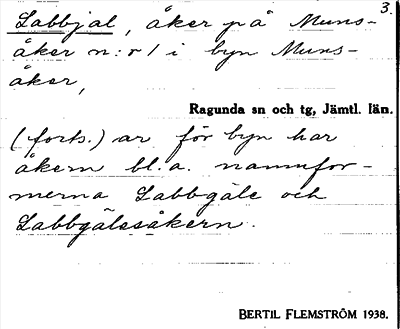 3.
Labbjäl, åker på Muns-
åker n:r 1 i byn Muns-
åker,
Ragunda sn och tg, Jämtl. län.
(forts.) ar för byn har
åkern bl.a. namnfor-
merna Labbgäle och
Labbgälesåkern.
BERTIL FLEMSTRÖM 1938.